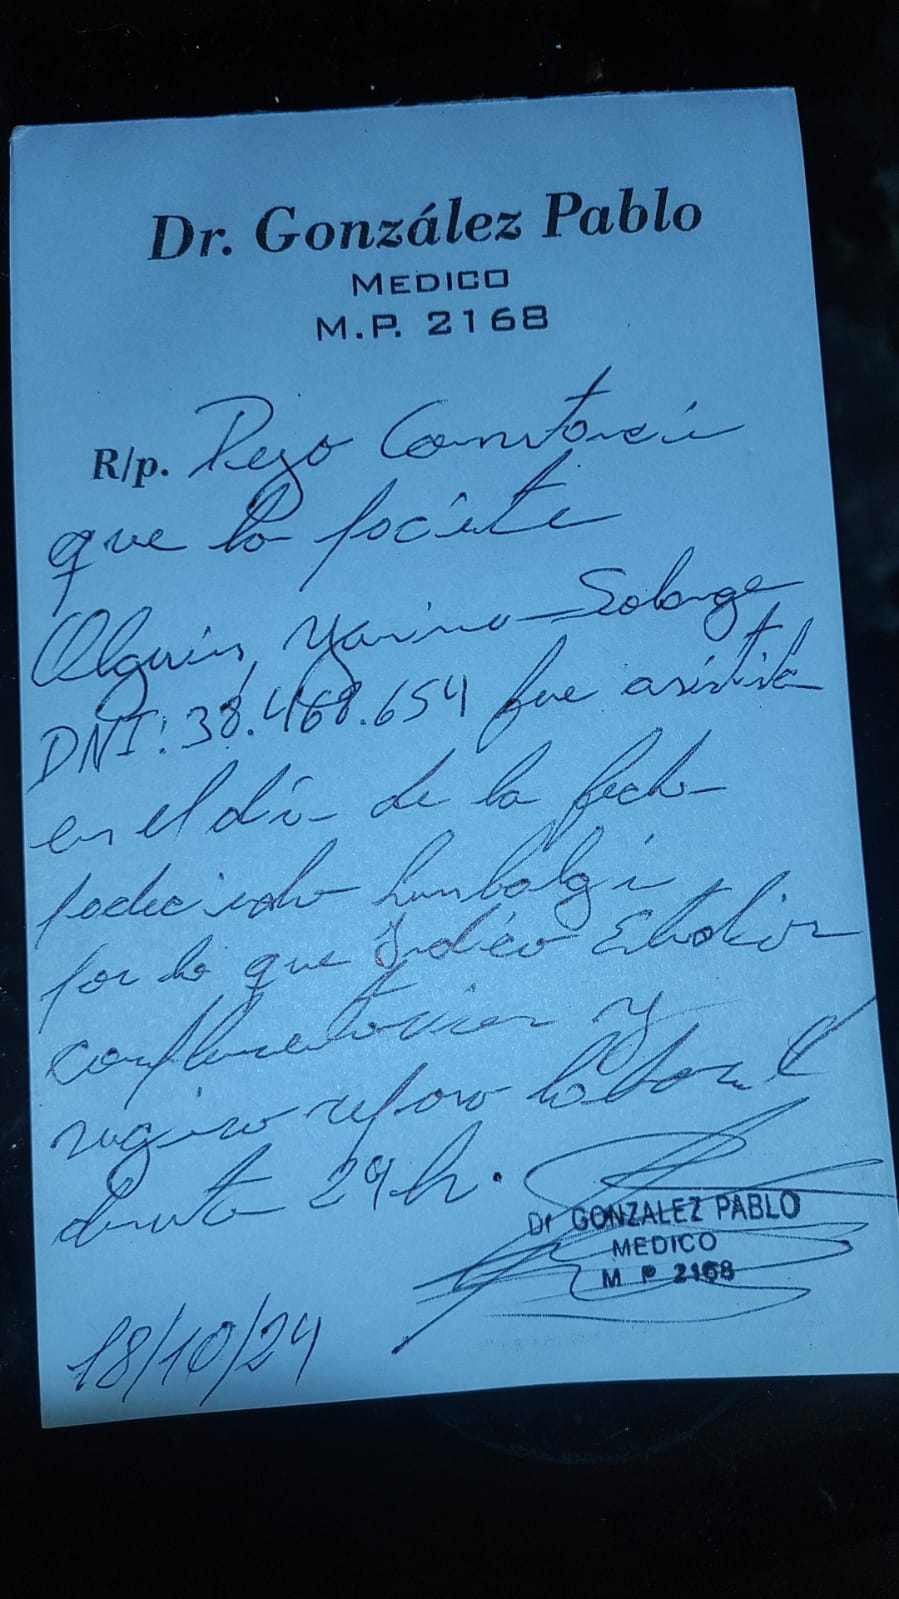 Dr. González Pablo
MEDICO
M.P. 2168
R/p. Dejo Constancia
que la paciente
Olguín, Yanina Solange
DNI: 38.468.654 fue asistida
en el día de la fecha
padeciendo lumbalgia
por lo que Indico Estudios
complementarios y
sugiero reposo laboral
durante 24 h.
Dr GONZALEZ PABLO
MEDICO
M P 2168
18/10/24